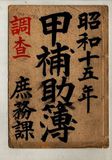 昭和十五年
甲補助簿
調査
庶務課